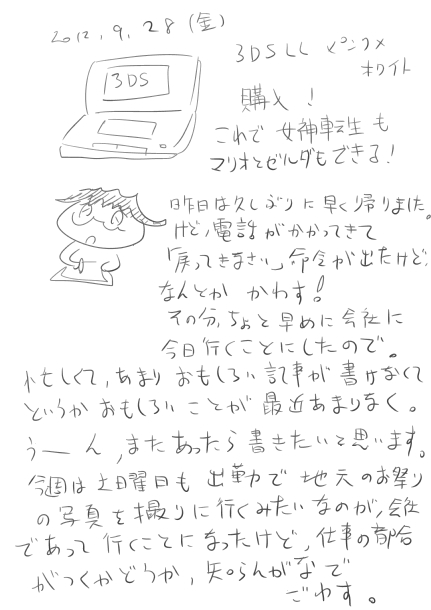 2012.9.28(金)
3DS
3DS LL ピンク×
ホワイト
購入!
これで 女神転生も
マリオとゼルダもできる!
昨日は久しぶりに早く帰りました。
けど、電話がかかってきて
「戻ってきなさい」命令が出たけど、
なんとか かわす!
その分、ちょと早めに会社に
今日行くことにしたので。
忙しくて、あまり おもしろい記事が書けなくて
というか おもしろいことが最近あまりなく。
うーん、またあったら書きたいと思います。
今週は土曜日も出勤で地元のお祭り
の写真を撮りに行くみたいなのが、会社
であって行くことになったけど、仕事の都合
がつくかどうか、知らんがなで
ごわす。